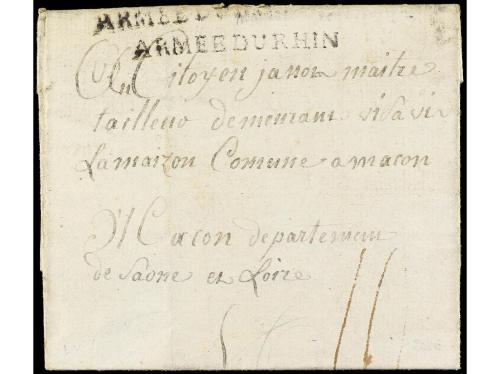 ARMEE DU
ARMEE DU RHIN
Au Citoyen janon maitre
tailleur demeurant visavi
Lamaizon Comune a macon
Macon departemen
de Saone et Loire